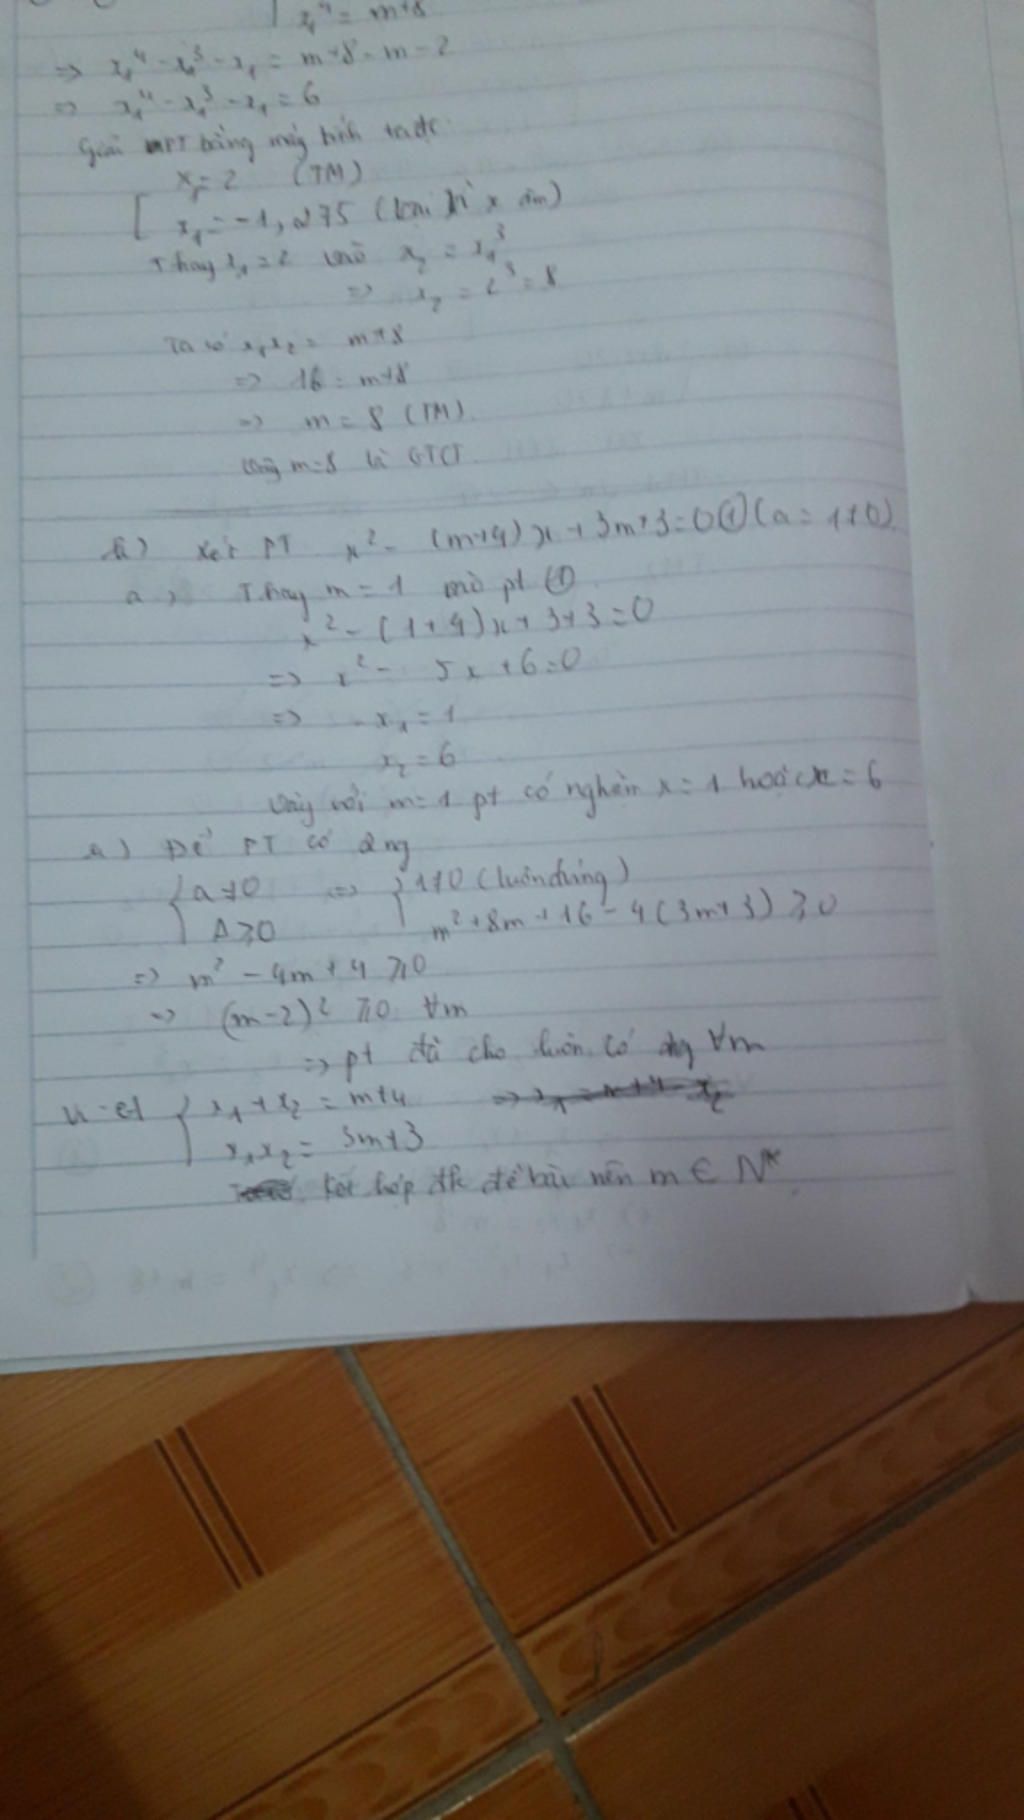 x₁⁴ = m+8
=> x₁⁴ - x₁³ - x₁ = m+8-m-2
=> x₁⁴ - x₁³ - x₁ = 6
Giải PT bằng máy tính ta đc
x₁=2 (TM)
x₁=-1,275 (loại vì x âm)
Thay x₁=2 vào x₂ = x₁³
=> x₂ = 2³ = 8
Ta có x₁x₂ = m+8
=> 16 = m+8
=> m = 8 (TM).
Vậy m=8 là GTCT.
Xét PT x² - (m+4)x + 3m+3=0 ① (a = 1≠0)
a, Thay m = 1 vào pt ①
x² - (1+4)x + 3+3=0
=> x² - 5x + 6=0
=> x₁ = 1
x₂ = 6
Vậy với m=1 pt có nghiệm x=1 hoặc x=6
a) Để PT có 2ng
{ a≠0 => { 1≠0 (luôn đúng)
Δ≥0 m²+8m+16-4(3m+3) ≥0
=> m² - 4m + 4 ≥0
=> (m-2)² ≥0 ∀m
=> pt đã cho luôn có 2ng ∀m
Vi-et { x₁+x₂ = m+4 => x₁ = m+4-x₂
x₁x₂ = 3m+3
Kết hợp đk đề bài nên m ∈ N*